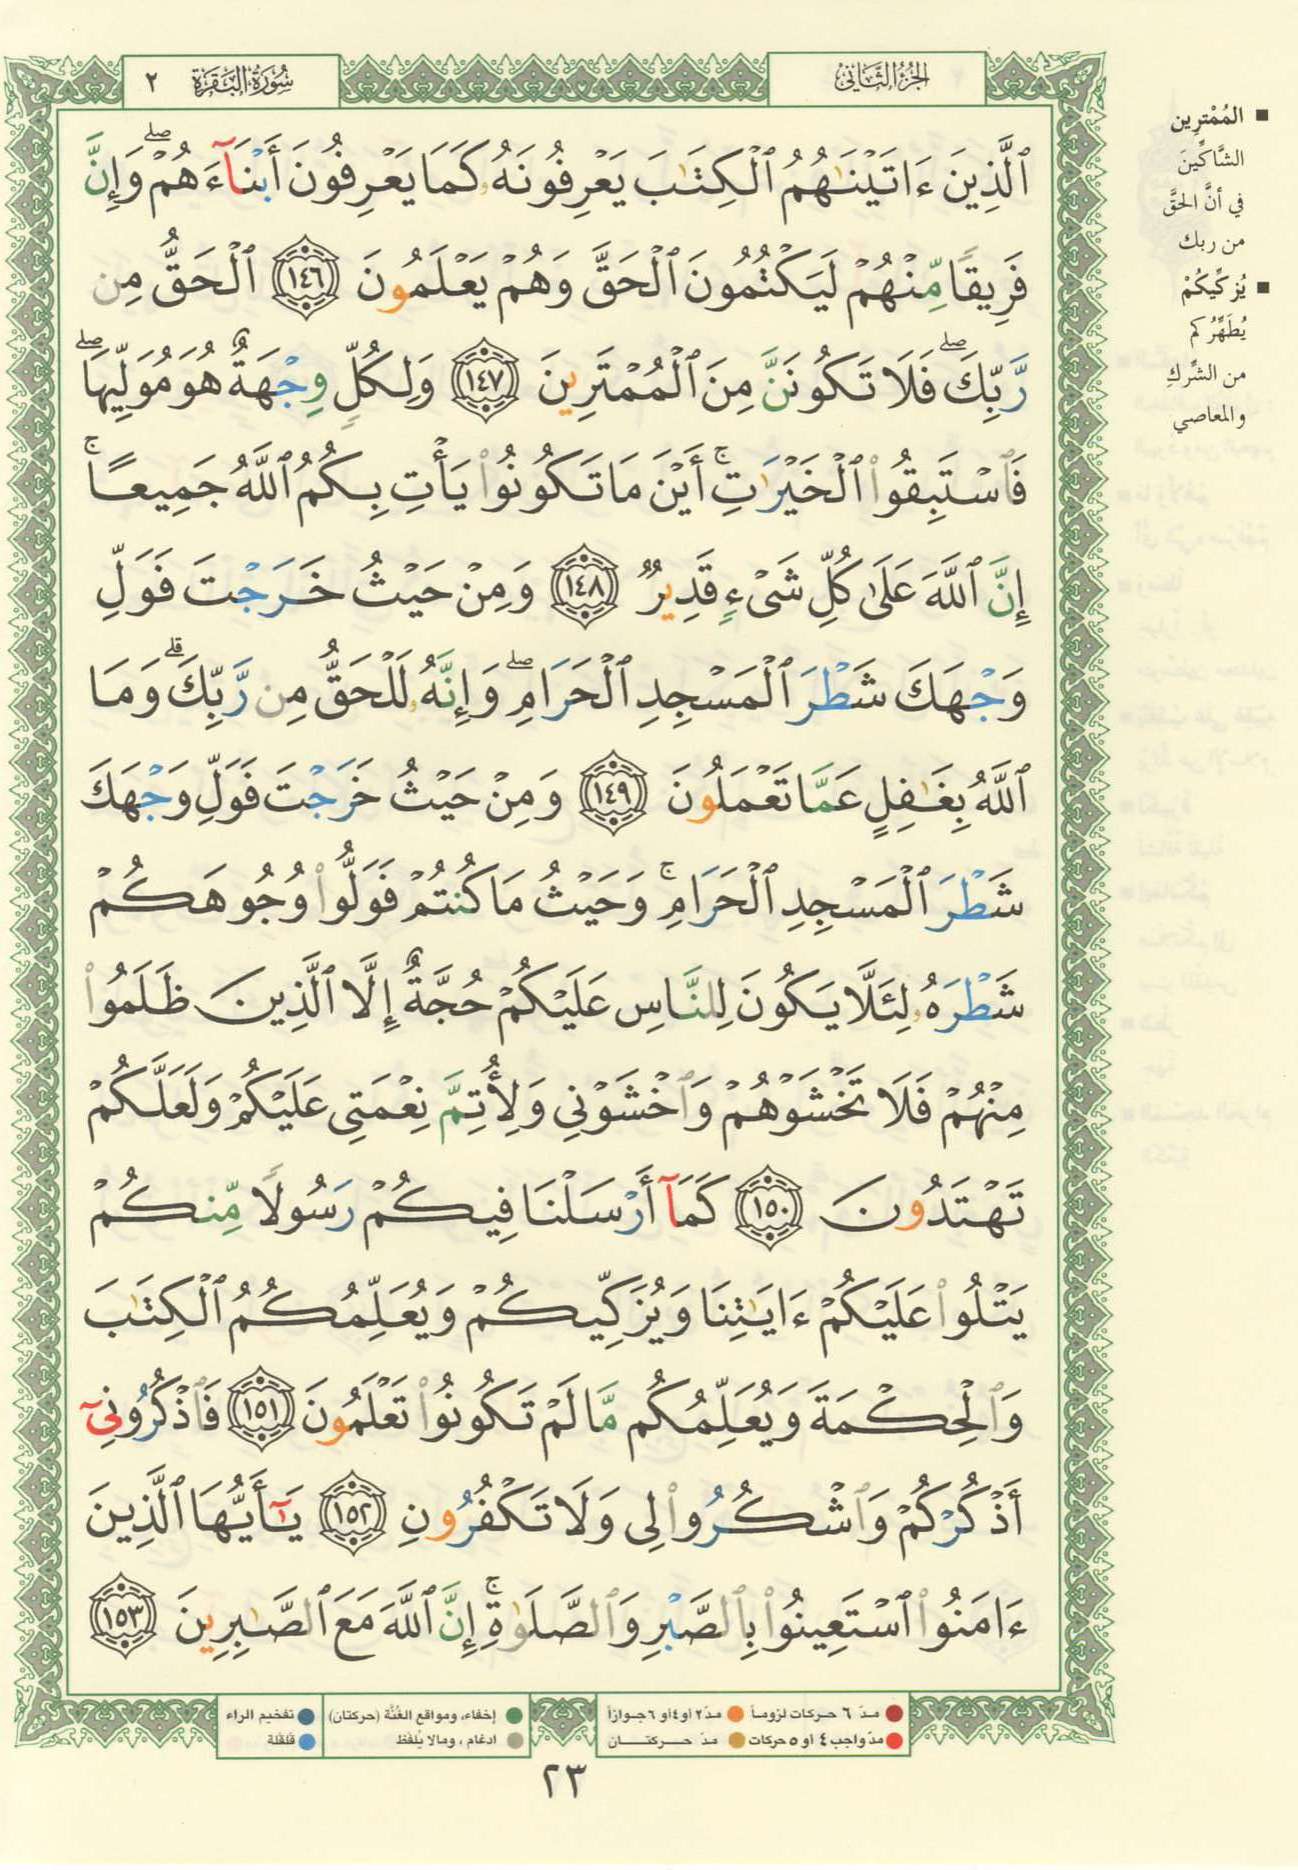 الجزء الثاني
سورة البقرة ٢
ٱلَّذِينَ ءَاتَيْنَٰهُمُ ٱلْكِتَٰبَ يَعْرِفُونَهُۥ كَمَا يَعْرِفُونَ أَبْنَآءَهُمْ ۖ وَإِنَّ
فَرِيقًا مِّنْهُمْ لَيَكْتُمُونَ ٱلْحَقَّ وَهُمْ يَعْلَمُونَ ١٤٦ ٱلْحَقُّ مِن
رَّبِّكَ ۖ فَلَا تَكُونَنَّ مِنَ ٱلْمُمْتَرِينَ ١٤٧ وَلِكُلٍّ وِجْهَةٌ هُوَ مُوَلِّيهَا ۖ
فَٱسْتَبِقُوا۟ ٱلْخَيْرَٰتِ ۚ أَيْنَ مَا تَكُونُوا۟ يَأْتِ بِكُمُ ٱللَّهُ جَمِيعًا ۚ
إِنَّ ٱللَّهَ عَلَىٰ كُلِّ شَىْءٍ قَدِيرٌ ١٤٨ وَمِنْ حَيْثُ خَرَجْتَ فَوَلِّ
وَجْهَكَ شَطْرَ ٱلْمَسْجِدِ ٱلْحَرَامِ ۖ وَإِنَّهُۥ لَلْحَقُّ مِن رَّبِّكَ ۗ وَمَا
ٱللَّهُ بِغَٰفِلٍ عَمَّا تَعْمَلُونَ ١٤٩ وَمِنْ حَيْثُ خَرَجْتَ فَوَلِّ وَجْهَكَ
شَطْرَ ٱلْمَسْجِدِ ٱلْحَرَامِ ۚ وَحَيْثُ مَا كُنتُمْ فَوَلُّوا۟ وُجُوهَكُمْ
شَطْرَهُۥ لِئَلَّا يَكُونَ لِلنَّاسِ عَلَيْكُمْ حُجَّةٌ إِلَّا ٱلَّذِينَ ظَلَمُوا۟
مِنْهُمْ فَلَا تَخْشَوْهُمْ وَٱخْشَوْنِى وَلِأُتِمَّ نِعْمَتِى عَلَيْكُمْ وَلَعَلَّكُمْ
تَهْتَدُونَ ١٥٠ كَمَآ أَرْسَلْنَا فِيكُمْ رَسُولًا مِّنكُمْ
يَتْلُوا۟ عَلَيْكُمْ ءَايَٰتِنَا وَيُزَكِّيكُمْ وَيُعَلِّمُكُمُ ٱلْكِتَٰبَ
وَٱلْحِكْمَةَ وَيُعَلِّمُكُم مَّا لَمْ تَكُونُوا۟ تَعْلَمُونَ ١٥١ فَٱذْكُرُونِىٓ
أَذْكُرْكُمْ وَٱشْكُرُوا۟ لِى وَلَا تَكْفُرُونِ ١٥٢ يَٰٓأَيُّهَا ٱلَّذِينَ
ءَامَنُوا۟ ٱسْتَعِينُوا۟ بِٱلصَّبْرِ وَٱلصَّلَوٰةِ ۚ إِنَّ ٱللَّهَ مَعَ ٱلصَّٰبِرِينَ ١٥٣
■ المُمْترِين
الشَّاكِّينَ
في أنَّ الحقَّ
من ربك
■ يُزكِّيكُمْ
يُطَهِّرُكم
من الشِّركِ
والمعاصي
● مدّ ٦ حركات لزوماً ● مدّ ٢ أو ٤ أو ٦ جوازاً
● مدّ واجب ٤ أو ٥ حركات ● مدّ حركتان
● إخفاء، ومواقع الغُنَّة (حركتان)
● ادغام ، ومالا يُلفَظ
● تفخيم الراء
● قلقلة
٢٣